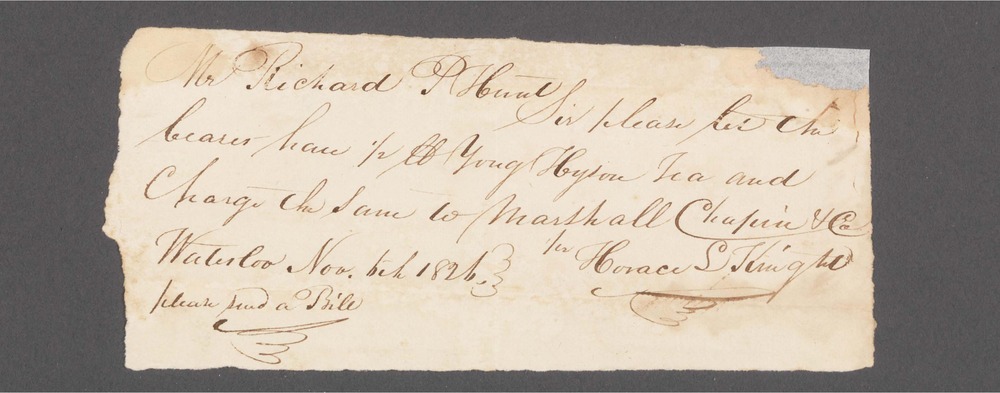 Mr Richard P Hunt
Sir please let the
bearer have ½ lb Yong Hyson Tea and
Charge the Same to Marshall Chapin & Co
Waterloo Nov. 6th 1826. pr Horace L Knight
please send a Bill